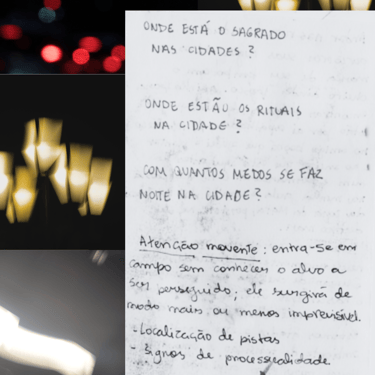 ONDE ESTÁ O SAGRADO
NAS CIDADES?
ONDE ESTÃO OS RITUAIS
NA CIDADE?
COM QUANTOS MEDOS SE FAZ
NOITE NA CIDADE?
Atenção movente: entra-se em
campo sem conhecer o alvo a
ser perseguido; ele surgirá de
modo mais ou menos imprevisível.
- Localização de pistas
- Signos de processualidade